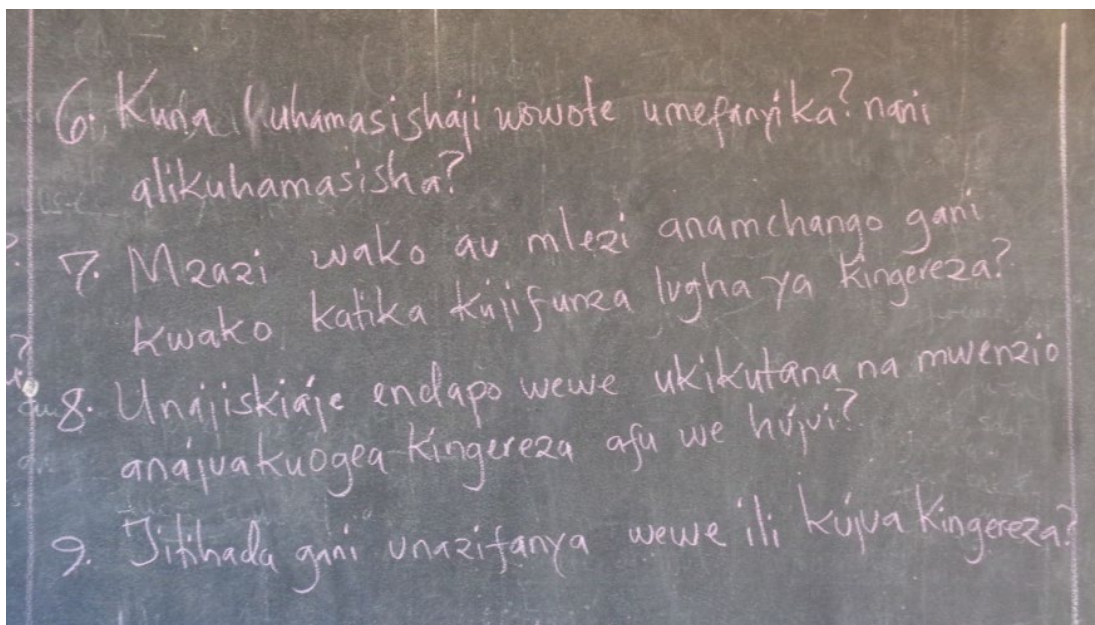 6. Kuna uhamasishaji wowote umefanyika? nani
alikuhamasisha?
7. Mzazi wako au mlezi anamchango gani
kwako katika kujifunza lugha ya kingereza?
8. Unajiskiaje endapo wewe ukikutana na mwenzio
anajua kuogea kingereza afu we hujui?
9. Jitihada gani unazifanya wewe ili kujua kingereza?